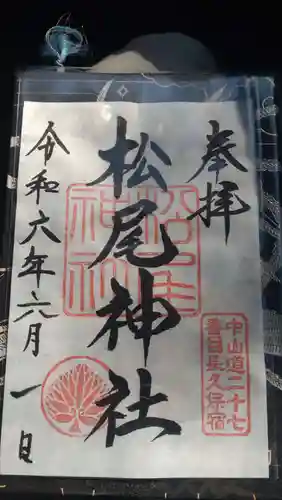 奉拝
中山道二十七
番目長久保宿
松尾神社
松尾
神社
令和六年六月一日